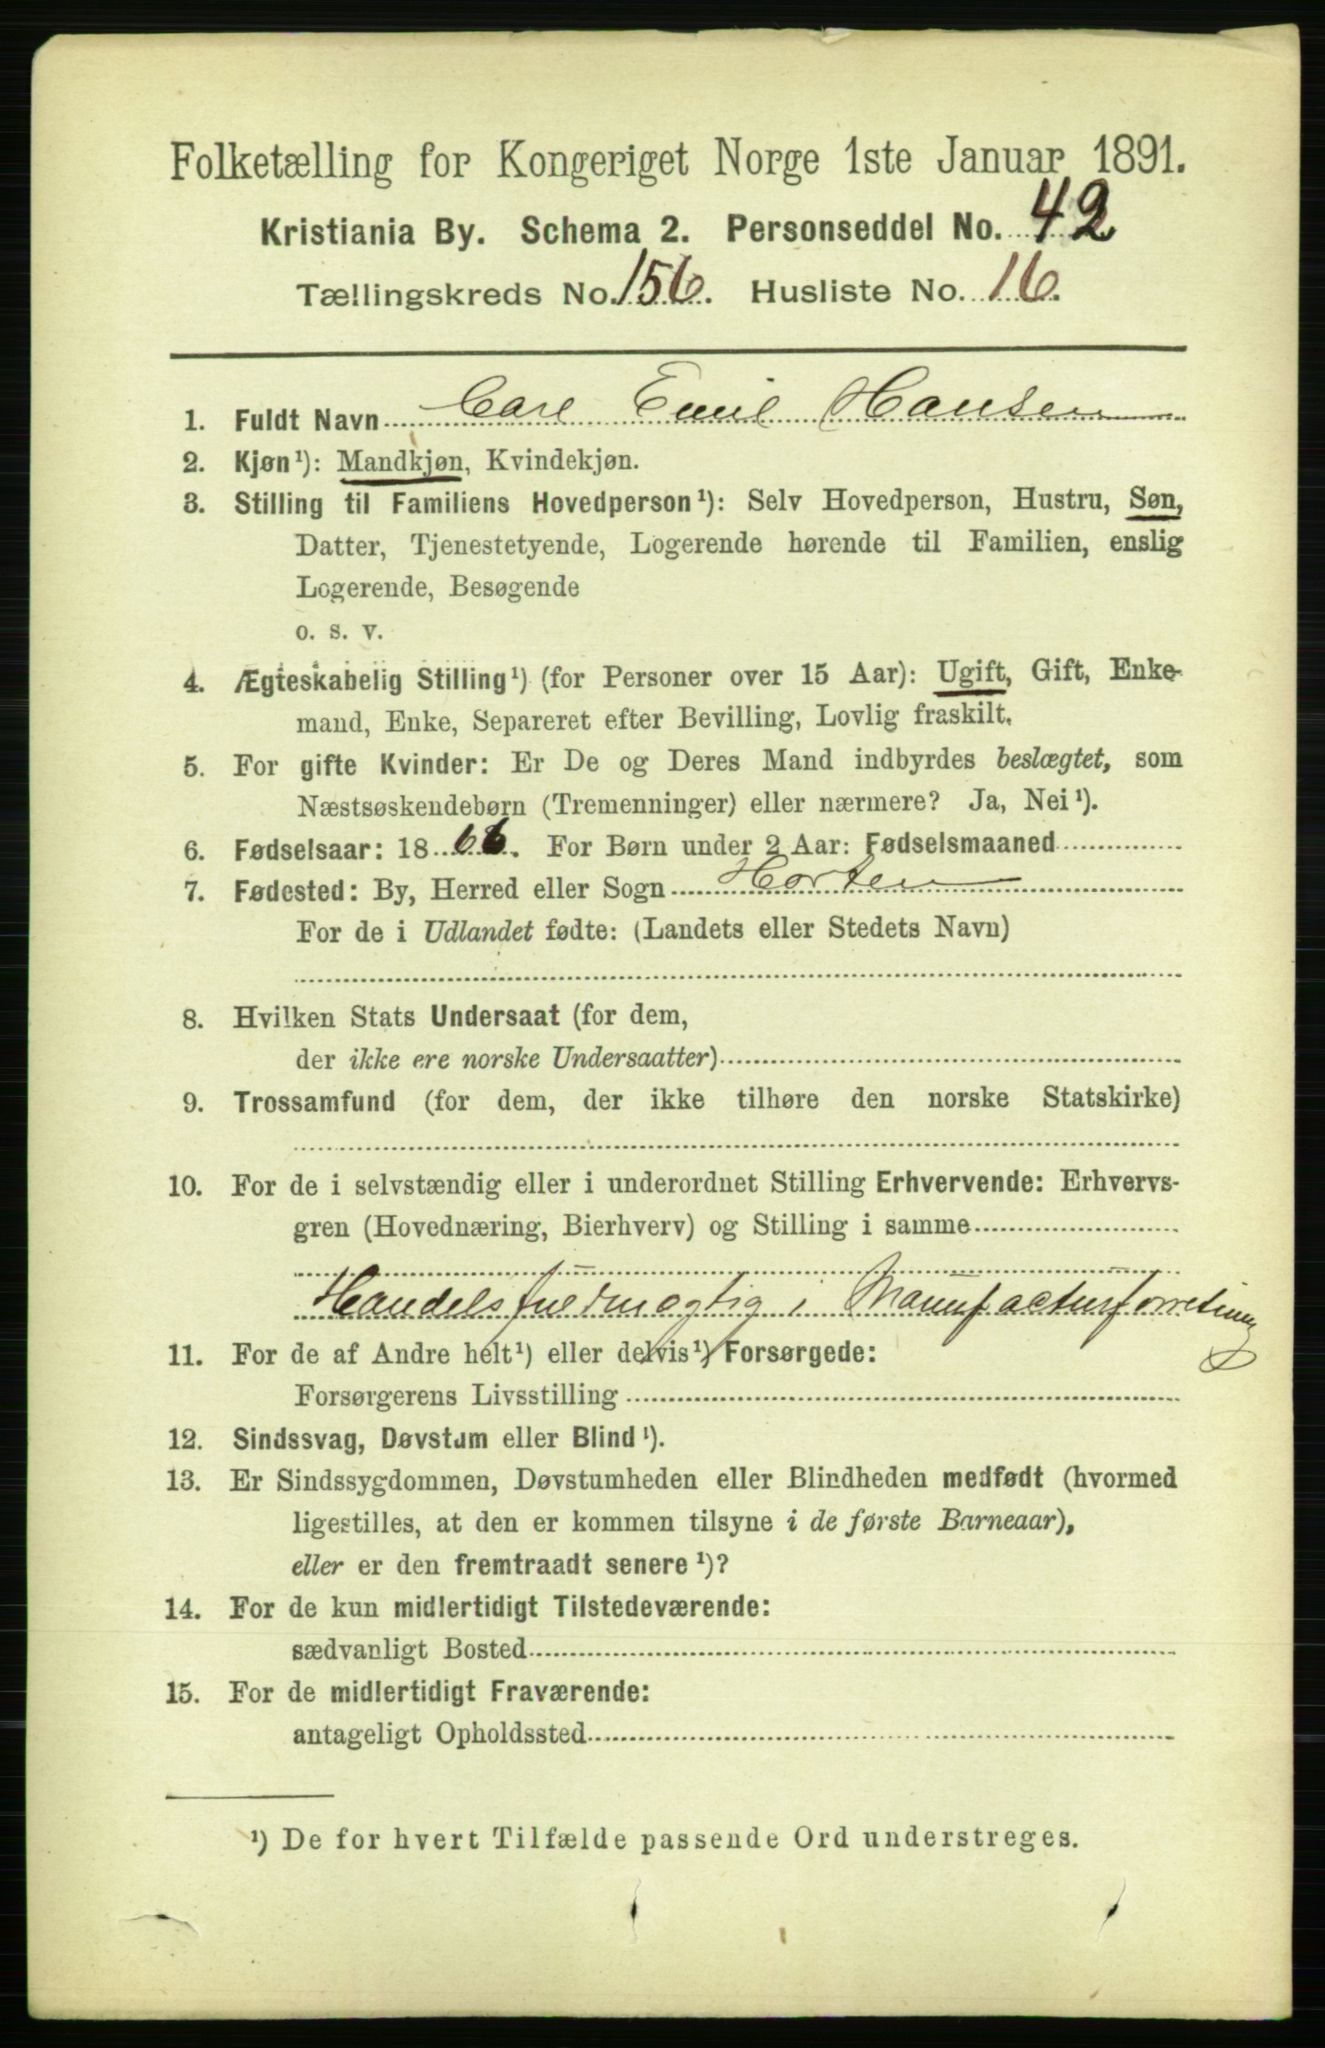 Folketælling for Kongeriget Norge 1ste Januar 1891.
Kristiania By. Schema 2. Personseddel No. 42
Tællingskreds No. 156. Husliste No. 16.
1. Fuldt Navn Carl Emil Hansen
2. Kjøn¹): Mandkjøn, Kvindekjøn.
3. Stilling til Familiens Hovedperson¹): Selv Hovedperson, Hustru, Søn,
Datter, Tjenestetyende, Logerende hørende til Familien, enslig
Logerende, Besøgende
o. s. v.
4. Ægteskabelig Stilling¹) (for Personer over 15 Aar): Ugift, Gift, Enke-
mand, Enke, Separeret efter Bevilling, Lovlig fraskilt.
5. For gifte Kvinder: Er De og Deres Mand indbyrdes beslægtet, som
Næstsøskendebørn (Tremenninger) eller nærmere? Ja, Nei¹).
6. Fødselsaar: 1866. For Børn under 2 Aar: Fødselsmaaned
7. Fødested: By, Herred eller Sogn Horten
For de i Udlandet fødte: (Landets eller Stedets Navn)
8. Hvilken Stats Undersaat (for dem,
der ikke ere norske Undersaatter)
9. Trossamfund (for dem, der ikke tilhøre den norske Statskirke)
10. For de i selvstændig eller i underordnet Stilling Erhvervende: Erhvervs-
gren (Hovednæring, Bierhverv) og Stilling i samme
Handelsfuldmægtig i Manufacturforretning
11. For de af Andre helt¹) eller delvis¹) Forsørgede:
Forsørgerens Livsstilling
12. Sindssvag, Døvstum eller Blind¹).
13. Er Sindssygdommen, Døvstumheden eller Blindheden medfødt (hvormed
ligestilles, at den er kommen tilsyne i de første Barneaar),
eller er den fremtraadt senere¹)?
14. For de kun midlertidigt Tilstedeværende:
sædvanligt Bosted
15. For de midlertidigt Fraværende:
antageligt Opholdssted
¹) De for hvert Tilfælde passende Ord understreges.